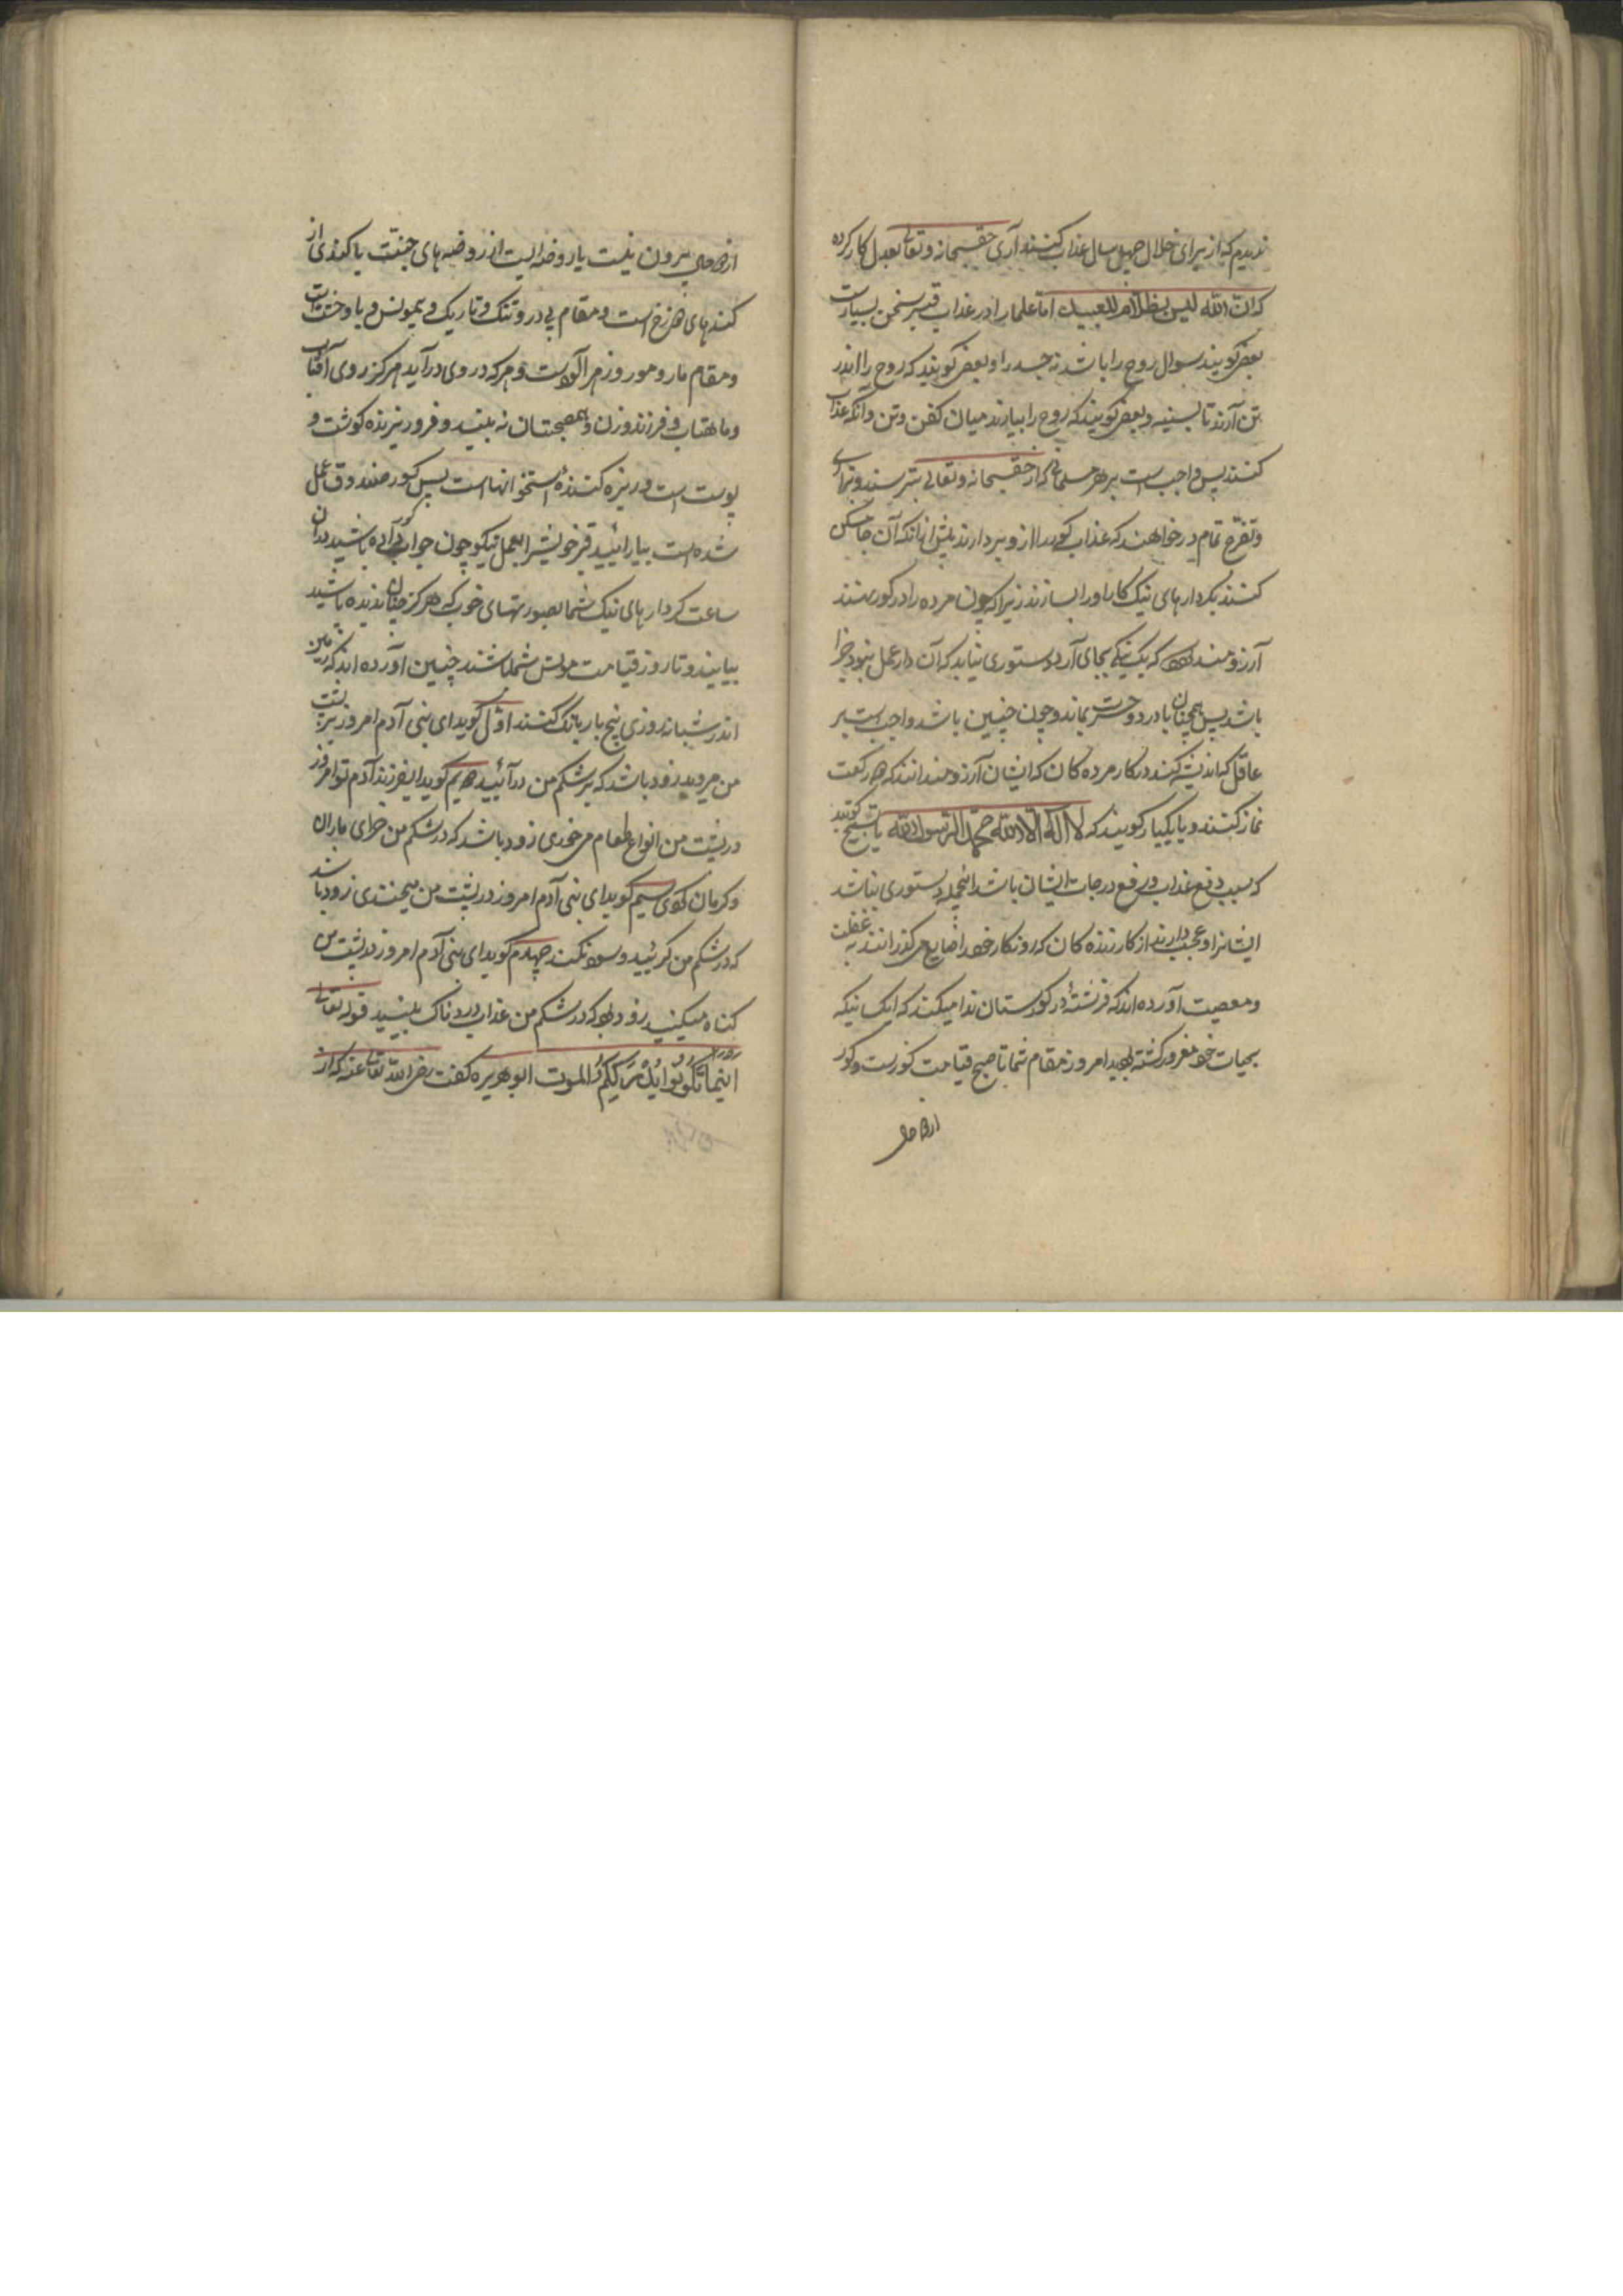 ندیدم که از برای خلال چهل سال عذاب کنند آری حق سبحانه وتعالی بعدل کار کرده
که ان الله لیس بظلام للعبید اما علما را در عذاب قبر سخن بسیار است
بعض کویند سوال روح را باشد نه جسد را و بعض کویند که روح را اندر
تن آرند تا بسینه و بعض کویند که روح را بیارند میان کفن و تن وانکه عذاب
کنند پس واجب است بر هر مسلمانی که از حق سبحانه وتعالی بترسند و
وتضرع تمام در خواهند که عذاب کور را ازو بردارند پیش از انکه آن جا مسکن
کنند بکردارهای نیک کار او را بسازند زیرا که چون مرده را در کور نهند
آرزومند بود که یک نیکی بجای آرد دستوری نیابد که آن دار عمل نبود جزا
باشد پس همچنان با درد و حسرت بماند و چون چنین باشد واجب است بر
عاقل که اندیشه کند در کار مرده کان که ایشان آرزومند انند که هر رکعت
نماز کنند و یا یکبار کویند که لا اله الا الله محمد الرسول الله یا تسبیح کویند
که سبب دفع عذاب و رفع درجات ایشان باشد اینجمله دستوری نباشد
ایشانرا و عجب دارند از کار زنده کان که روزکار خود را ضایع میکذرانند به غفلت
و معصیت آورده اند که فرشتهٔ در کورستان ندا میکند که ایک نیکه
بحیات خود مغرور کشته بودید امروز مقام شما تا صبح قیامت کورست و کور
از دو حال
از دو حال بیرون نیست یا روضه ایست از روضه های جنت یا کندی از
کندهای دوزخ است و مقام بی در و تنک و تاریک و بیمونس و با وحشت است
و مقام مار و مور و زهرآلود است و هر که در وی در آید هرکز روی آفتاب
و ماهتاب و فرزند و زن و همصحبتان نه بیند و فرو ریزنده کوشت و
پوست است و ریزه کنندهٔ استخوانها است پس کور صندوق عمل
شده است بیارائید قبر خویش را بعمل نیکو چون جواب کور داده باشید دران
ساعت کردارهای نیک شما بصورتهای خوب که هرکز چنان ندیده باشید
بیایند و تا روز قیامت مونس شما باشند چنین آورده اند که زمین
اندر شبانه روزی پنج بار بانک کنند اول کوید ای بنی آدم امروز بر پشت
من میروید زود باشد که بر شکم من در آئید دویم کوید ایفرزند آدم تو امروز
در پشت من انواع طعام میخوری زود باشد که در شکم من خورای ماران
و کرمان شوی سیم کوید ای بنی آدم امروز در پشت من میخندی زود باشد
که در شکم من کرئید و سود نکند چهارم کوید ای بنی آدم امروز در پشت من
کناه میکنید زود بود که در شکم من عذاب دردناک بینید قوله تعالی
اینما تکونوا یدرککم الموت ابو هریره کفت رضی الله تعالی عنه که از